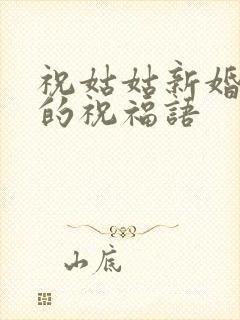 祝姑姑新婚
的祝福語
山底